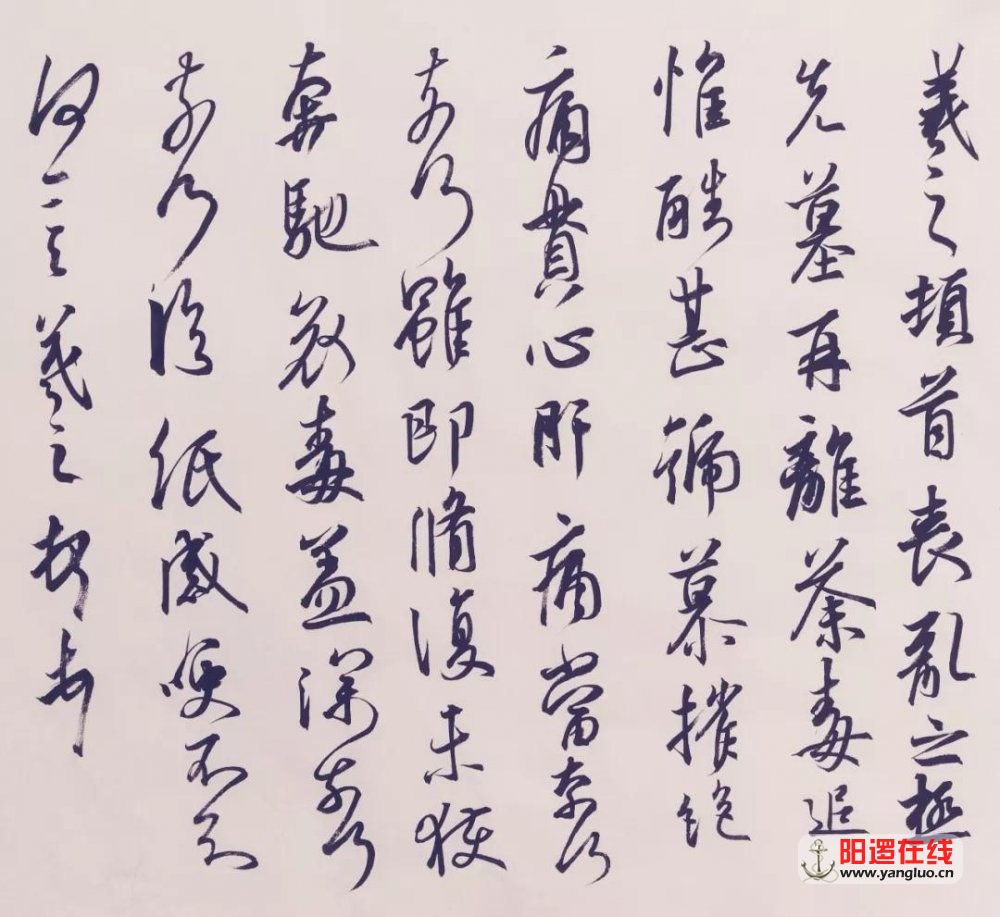 羲之頓首喪亂之極
先墓再離荼毒追
惟酷甚號慕摧絕
痛貫心肝痛當奈何
奈何雖即脩復未獲
奔馳哀毒益深奈何
奈何臨紙感哽不知
何言羲之頓首
阳逻在线
www.yangluo.cn